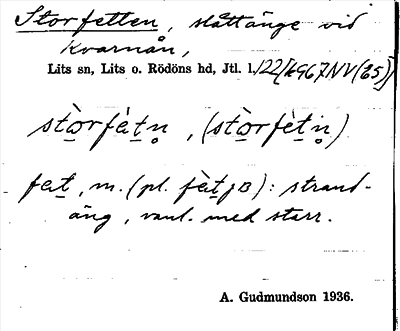 Storfetten, slåttänge vid
Kvarnån,
Lits sn, Lits o. Rödöns hd, Jtl. l. 122 [k967NV(65)]
stò̱rfè̱tn̥, (stò̱rfè̱tn̥)
fe̱t, m. (pl. fè̱tjɒ): strand-
äng, vanl. med starr.
A. Gudmundson 1936.